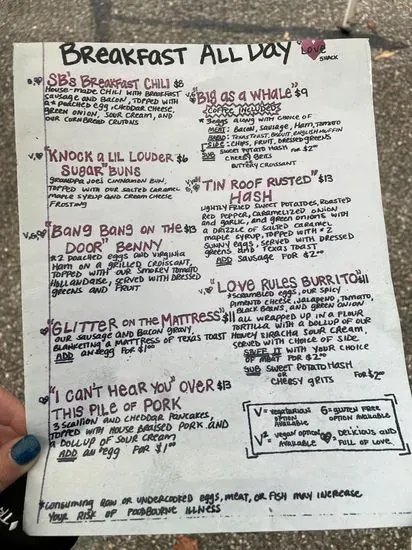 BREAKFAST ALL DAY "LOVE
SHACK
SB's BREAKFAST CHILI $8
HOUSE-MADE CHILI WITH BREAKFAST
SAUSAGE AND BACON, TOPPED WITH
A * POACHED EGG, CHEDDAR CHEESE,
GREEN ONION, SOUR CREAM, AND
OUR CORNBREAD CRUTONS
V, "KNOCK A LIL LOUDER $6
SUGAR" BUNS
GRANDPA JOE'S CINNAMON BUN,
TOPPED WITH OUR SALTED CARAMEL
MAPLE SYRUP AND CREAM CHEESE
FROSTING
"BANG BANG ON THE $13
DOOR" BENNY
*2 POACHED EGGS AND VIRGINIA
HAM ON A GRILLED CROISSANT,
TOPPED WITH OUR SMOKEY TOMATO
HOLLANDAISE, SERVED WITH DRESSED
GREENS AND FRUIT
"GLITTER ON THE MATTRESS" $11
OUR SAUSAGE AND BACON GRAVY,
BLANKETING A MATTRESS OF TEXAS TOAST
ADD AN *EGG FOR $1.00
"I CAN'T HEAR YOU" OVER $13
THIS PILE OF PORK
3 SCALLION AND CHEDDAR PANCAKES
TOPPED WITH HOUSE BRAISED PORK AND
A DOLLUP OF SOUR CREAM
ADD AN *EGG FOR $1.00
"BIG AS A WHALE" $9
COFFEE INCLUDED
*2 EGGS ALONG WITH CHOICE OF
MEAT: BACON, SAUSAGE, HAM, TOMATO
BREAD: TEXAS TOAST, BISCUIT, ENGLISH MUFFIN
SIDE: CHIPS, FRUIT, DRESSED GREENS
SUB SWEET POTATO HASH FOR $2.00
CHEESY GRITS
BUTTERY CROISSANT
"TIN ROOF RUSTED" $13
HASH
LIGHTLY FRIED SWEET POTATOES, ROASTED
RED PEPPER, CARAMELIZED ONION
AND GARLIC, AND GREEN ONIONS WITH
A DRIZZLE OF SALTED CARAMEL
MAPLE SYRUP, TOPPED WITH *2
SUNNY EGGS, SERVED WITH DRESSED
GREENS AND TEXAS TOAST
ADD SAUSAGE FOR $2.00
"LOVE RULES BURRITO" $11
*SCRAMBLED EGGS, OUR SPICY
PIMENTO CHEESE, JALAPENO, TOMATO,
BLACK BEANS, AND GREEN ONION
ALL WRAPPED UP IN A FLOUR
TORTILLA WITH A DOLLUP OF OUR
HONEY SIRACHA SOUR CREAM.
SERVED WITH CHOICE OF SIDE.
STUFF IT WITH YOUR CHOICE
OF MEAT FOR $2.00
SUB SWEET POTATO HASH
OR FOR $2.00
CHEESY GRITS
V = VEGETARIAN OPTION AVAILABLE
G = GLUTEN FREE OPTION AVAILABLE
V² = VEGAN OPTION AVAILABLE
= DELICIOUS AND FULL OF LOVE
*CONSUMING RAW OR UNDERCOOKED EGGS, MEAT, OR FISH MAY INCREASE
YOUR RISK OF FOODBOURNE ILLNESS